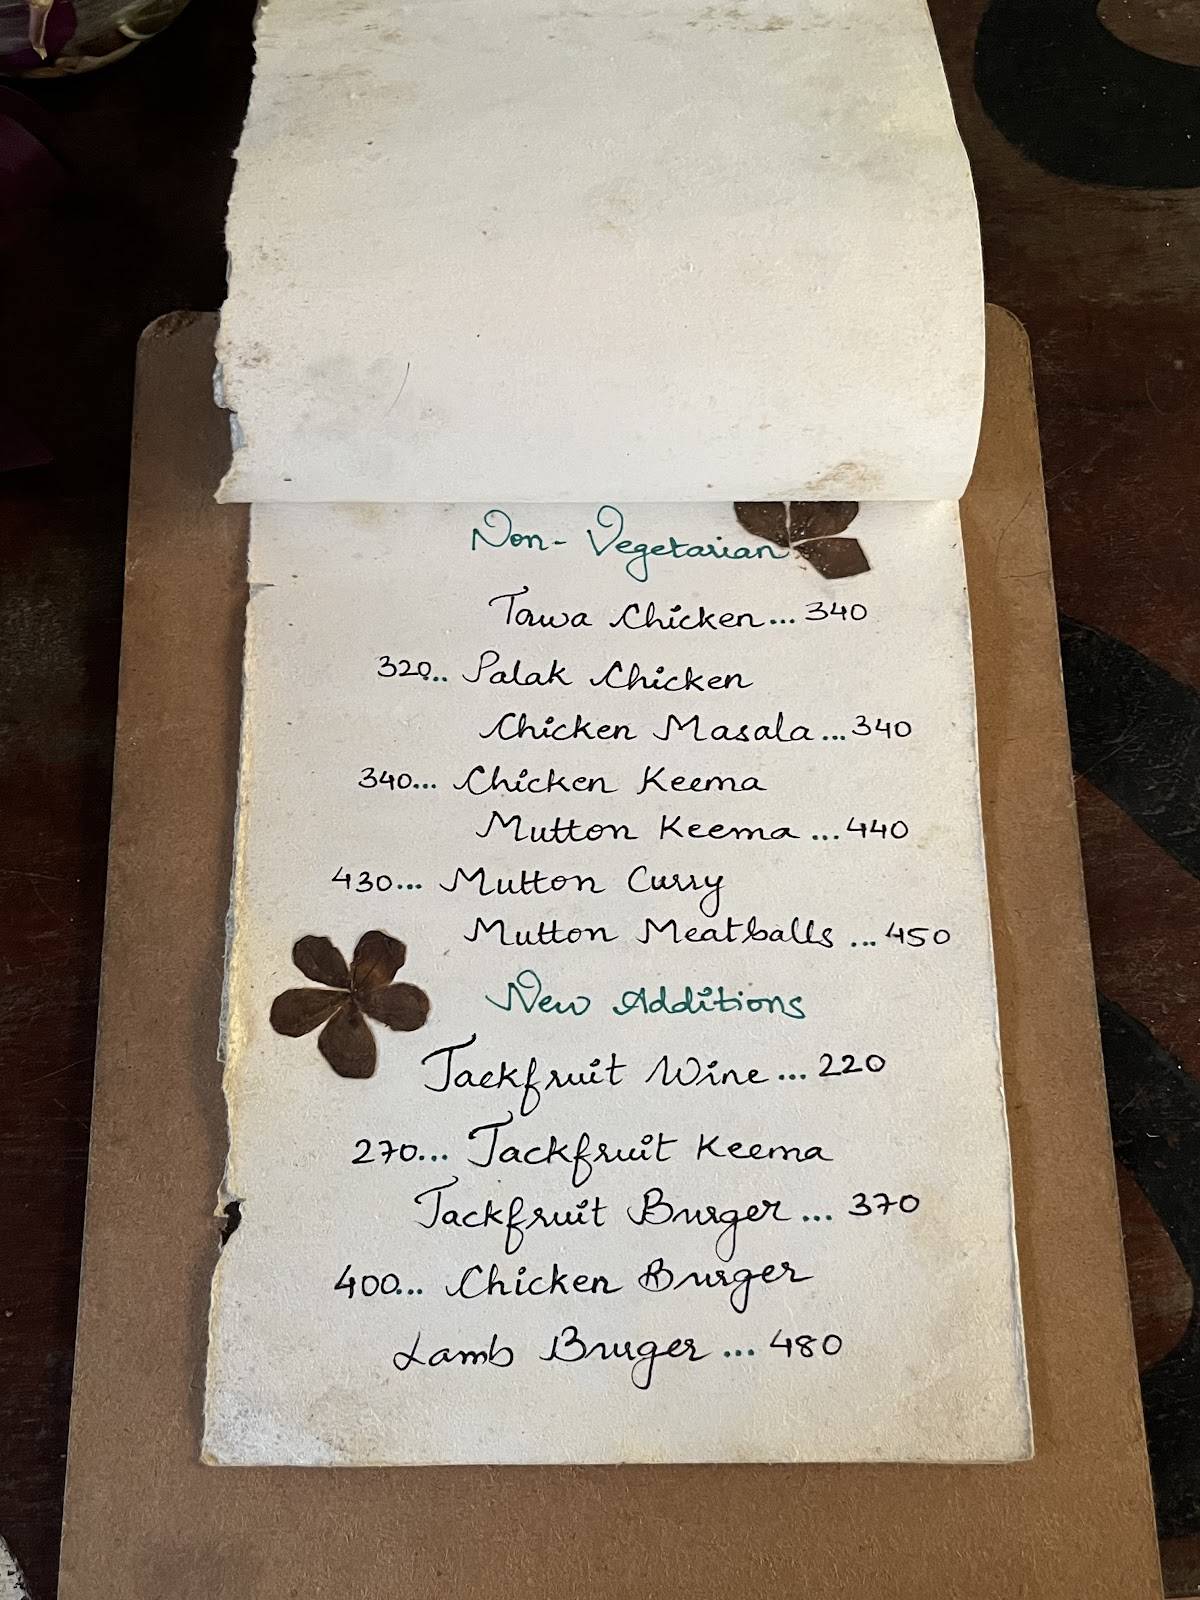 Non-Vegetarian
Tawa Chicken...340
320... Palak Chicken
Chicken Masala...340
340... Chicken Keema
Mutton Keema...440
430... Mutton Curry
Mutton Meatballs...450
New Additions
Jackfruit Wine...220
270... Jackfruit Keema
Jackfruit Burger...370
400... Chicken Burger
Lamb Burger...480